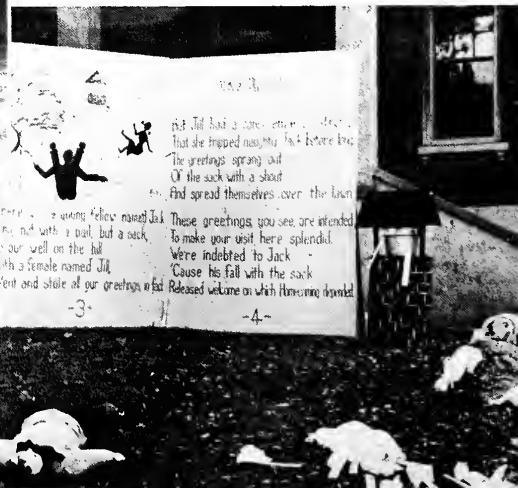 young fellow named Jack
not with a pail, but a sack,
our well on the hill
with a female named Jill,
Went and stole all our greetings, in fact.
-3-
But Jill had a
That she tripped naughty Jack before long
The greetings sprang out
Of the sack with a shout
And spread themselves over the lawn
These greetings, you see, are intended
To make your visit here splendid.
We're indebted to Jack
'Cause his fall with the sack
Released welcome on which Homecoming depended.
-4-